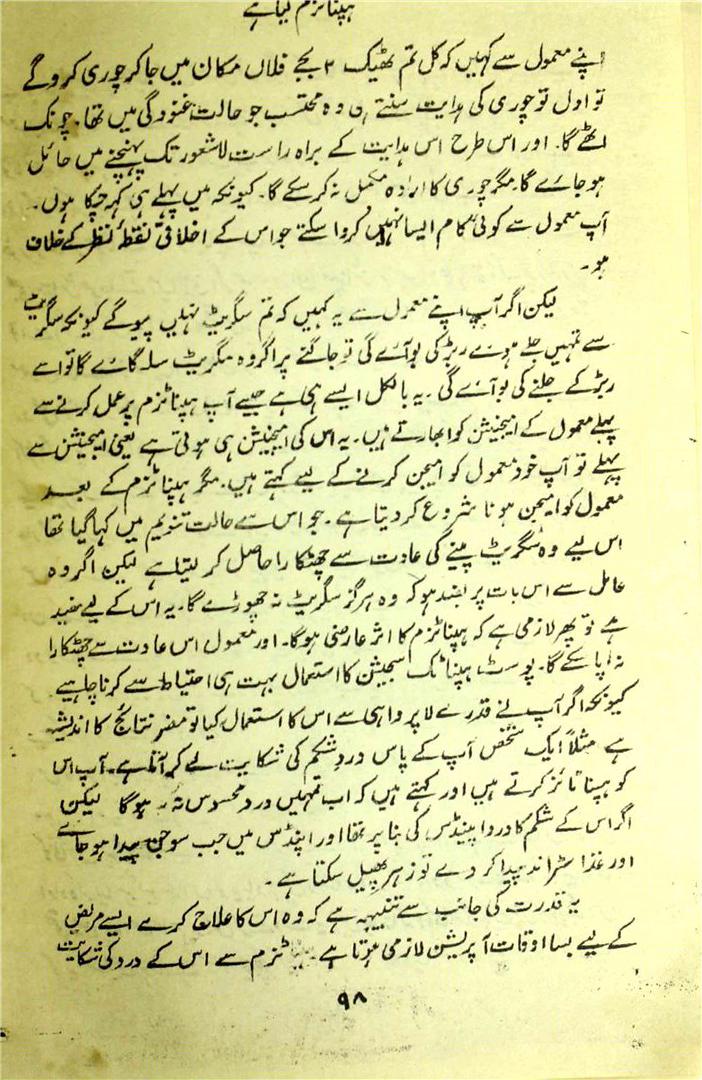 ہپناٹزم کیا ہے
اپنے معمول سے کہیں کہ کل تم ٹھیک ۳ بجے فلاں مکان میں جا کر چوری کرو گے
تو اول تو چوری کی ہدایت سنتے ہی وہ محتسب جو حالت غنودگی میں تھا۔ چونک
اٹھے گا۔ اور اس طرح اس ہدایت کے براہ راست لاشعور تک پہنچنے میں حائل
ہو جائے گا۔ مگر چوری کا ارادہ مکمل نہ کر سکے گا۔ کیونکہ میں پہلے ہی کہہ چکا ہوں۔
آپ معمول سے کوئی کام ایسا نہیں کروا سکتے جو اس کے اخلاقی نقطۂ نظر کے خلاف
ہو۔
لیکن اگر آپ اپنے معمول سے یہ کہیں کہ تم سگریٹ نہیں پیو گے کیونکہ سگریٹ
سے تمہیں جلے ہوئے ربڑ کی بو آئے گی تو جاگنے پر اگر وہ سگریٹ سلگائے گا تو اسے
ربڑ کے جلنے کی بو آئے گی۔ یہ بالکل ایسے ہی ہے جیسے آپ ہپناٹزم پر عمل کرنے سے
پہلے معمول کے امیجنیشن کو ابھارتے ہیں۔ یہ اس کی امیجنیشن ہی ہوتی ہے یعنی امیجنیشن سے
پہلے تو آپ خود معمول کو امیجن کرنے کے لیے کہتے ہیں۔ مگر ہپناٹزم کے بعد
معمول کو امیجن ہونا شروع کر دیتا ہے۔ جو اس سے حالت تنویم میں کہا گیا تھا
اس لیے وہ سگریٹ پینے کی عادت سے چھٹکارا حاصل کر لیتا ہے لیکن اگر وہ
عامل سے اس بات پر بضد ہو کہ وہ ہرگز سگریٹ نہ چھوڑے گا۔ یہ اس کے لیے مفید
ہے تو پھر لازمی ہے کہ ہپناٹزم کا اثر عارضی ہو گا۔ اور معمول اس عادت سے چھٹکارا
نہ پا سکے گا۔ پوسٹ ہپناٹک سجیشن کا استعمال بہت ہی احتیاط سے کرنا چاہیے
کیونکہ اگر آپ نے قدرے لا پرواہی سے اس کا استعمال کیا تو مضر نتائج کا اندیشہ
ہے مثلاً ایک شخص آپ کے پاس درد شکم کی شکایت لے کر آتا ہے۔ آپ اس
کو ہپناٹائز کرتے ہیں اور کہتے ہیں کہ اب تمہیں درد محسوس نہ ہو گا لیکن
اگر اس کے شکم کا درد اپینڈس کی بنا پر تھا اور اپنڈس میں جب سوجن پیدا ہو جائے
اور غذا سڑاند پیدا کر دے تو زہر پھیل سکتا ہے۔
یہ قدرت کی جانب سے تنبیہہ ہے کہ وہ اس کا علاج کرے ایسے مریض
کے لیے بسا اوقات آپریشن لازمی ہوتا ہے۔ ہپناٹزم سے اس کے درد کی شکایت
۹۸